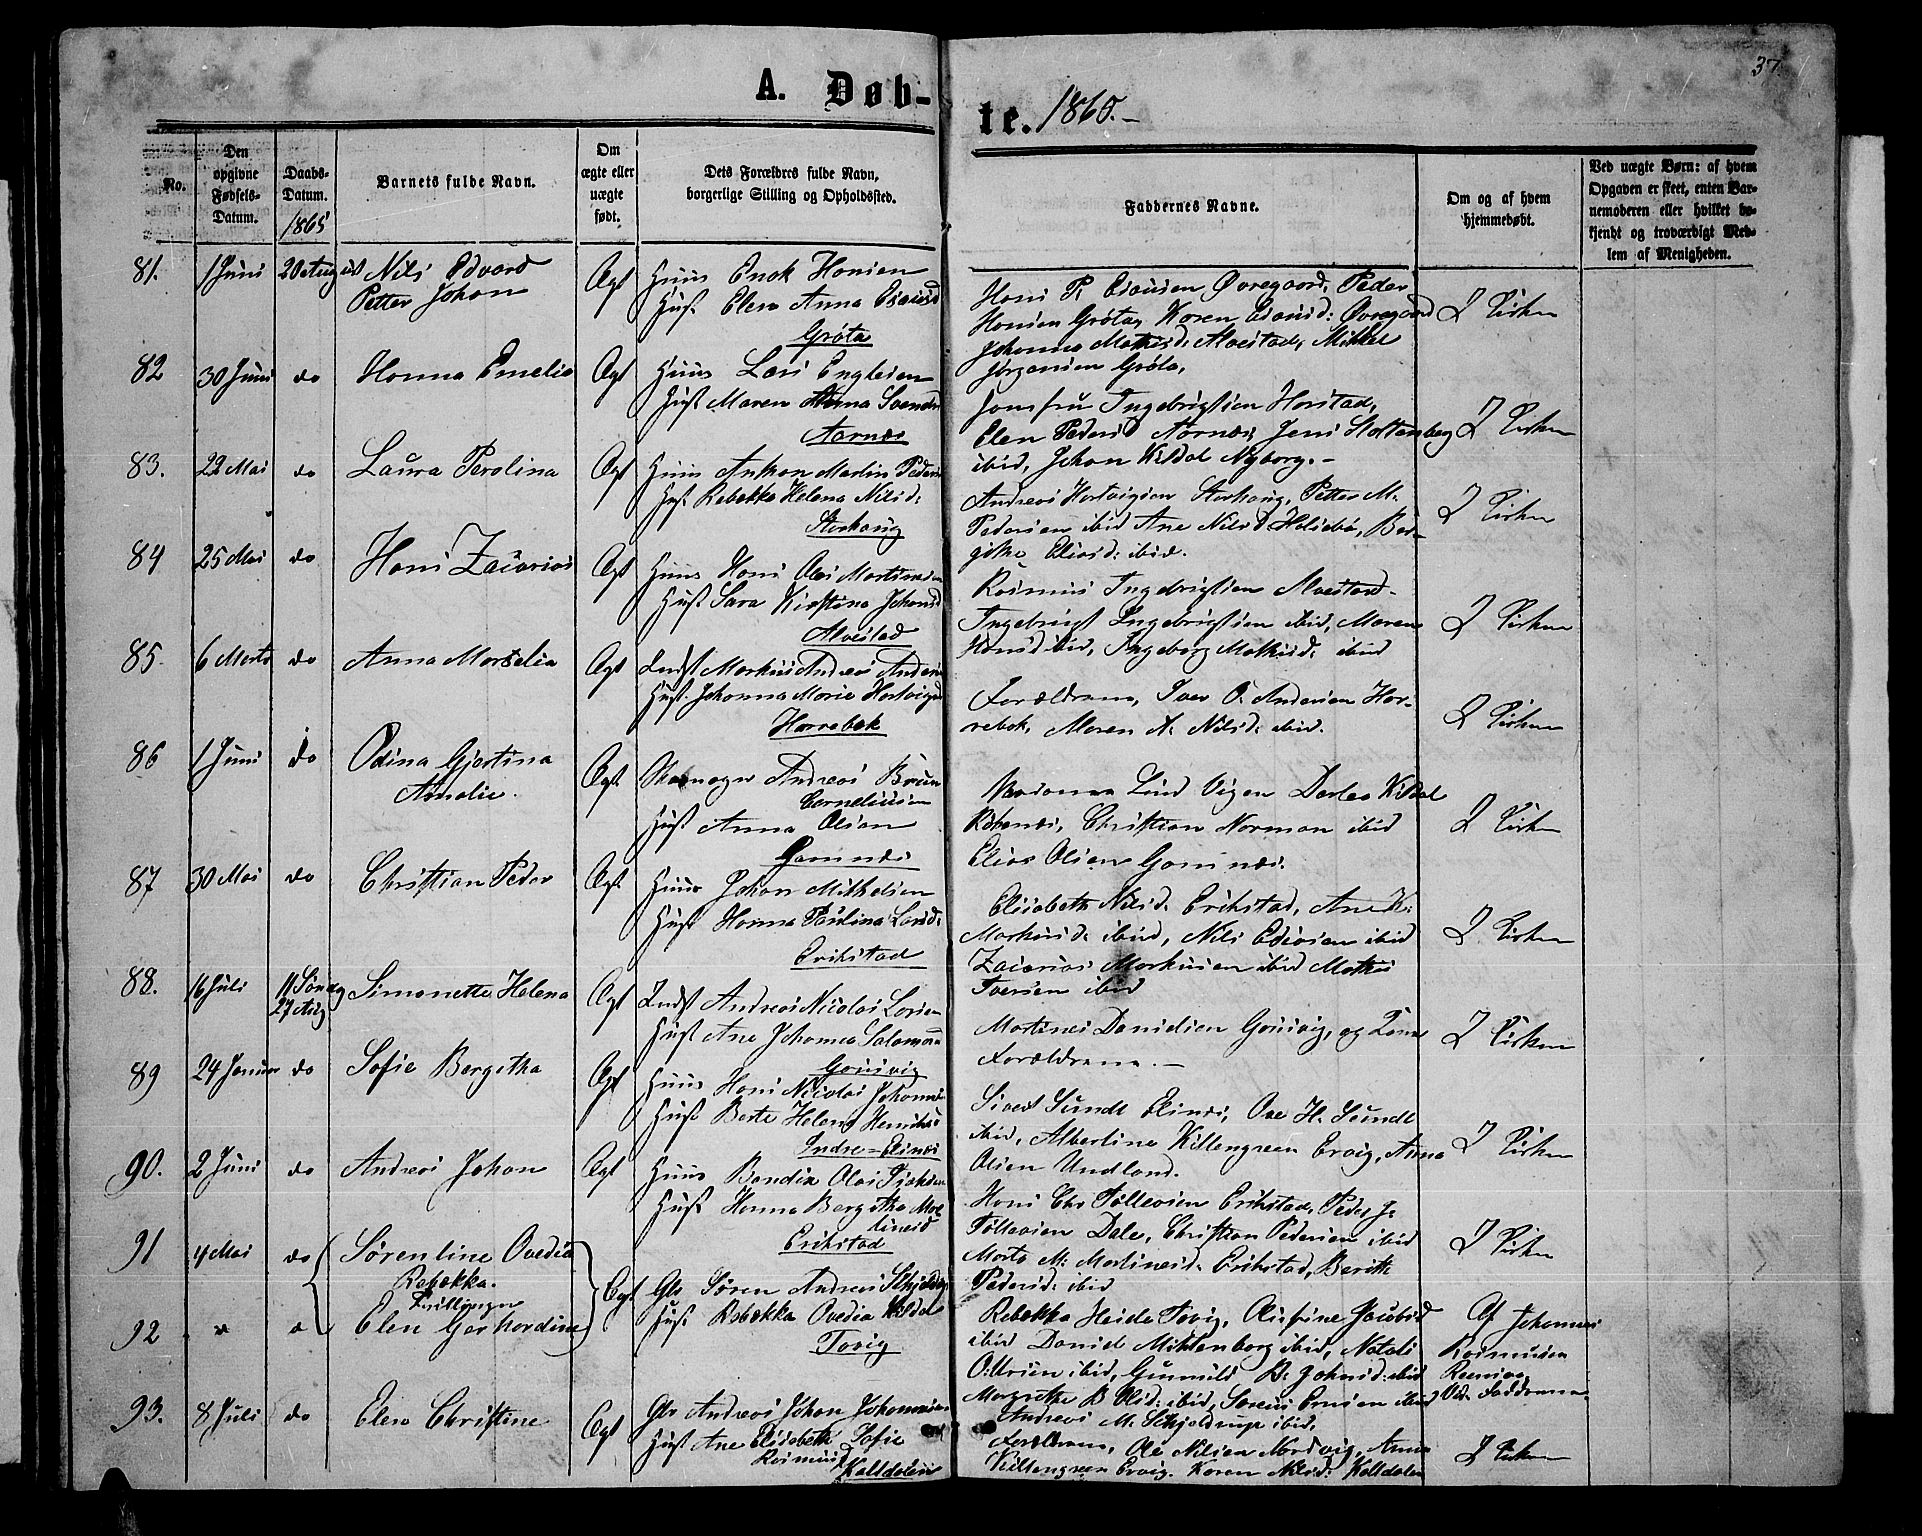 37.
A. Døb-
te. 1865.-
No.
Den
opgivne
Fødsels-
Datum.
Daabs-
Datum.
1865
Barnets fulde Navn.
Om
ægte eller
uægte
født.
Dets Forældres fulde Navn,
borgerlige Stilling og Opholdssted.
Faddernes Navne.
Om og af hvem
hjemmedøbt.
Ved uægte Børn: af hvem
Opgaven er skeet, enten Bar-
nemoderen eller hvilket be-
kjendt og troværdigt Med-
lem af Menigheden.
81. 1 Juni 20 August Nils Edvard
Petter Johan
Ægt
Huus Enok Hansen
Hust. Elen Anna Esaiasd
Grøta
Hans P. Esaiasen Øvregaard, Peder
Hansen Grøta, Karen Esaiasd: Øvregaard
Johanna Mathisd: Alvestad, Mikkel
Jørgensen Grøta,
I Kirken
82 30 Juni do Hanna Emelie
Ægt
Huus Lars
Hust Maren Anna
Aarnæs
Jomfru Ingebrigtsen Harstad,
Elen Pedersd Aarnæs, Jens Stoltenberg
ibid, Johan Kildal Nyborg.-
I Kirken
83. 22 Mai do Laura Perolina
Ægt
Huus Anton Martin Peders
Hust Rebekka Helena Nilsd:
Storhaug
Andreas Hartvigsen Storhaug, Petter M.
Pedersen ibid Ane Nilsd: Ber-
githe Eliasd: ibid.
I Kirken
84 25 Mai do Hans Zacarias
Ægt
Huus Hans Olai Martinsen
Hust Sara Kirstina Johansd
Alvestad
Rasmus Ingebrigtsen Alvestad
Ingebrigt Ingebrigtsen ibid, Maren
Hansd ibid, Ingeborg Mathisd: ibid
I Kirken
85. 6 Marts do Anna Marselia
Ægt
Indst Markus Andreas Anders
Hust. Johanna Marie Hartvigsd
Harrebek
Forældrene, Iver O. Andersen Har-
rebek, Maren A. Nilsd: ibid.
I Kirken
86 1 Juni do Odina Gjertina
Amalie.
Ægt.
Andreas
Corneliussen
Hust Anna Olsen
Gamnæs
Lind Vigen Dorthea Kildal
Christian Norman ibid
Elias Olsen Gamnæs.
I Kirken
87 30 Mai do Christian Peder
Ægt.
Huus Johan Mikkelsen
Hust Hanna Paulina Larsd:
Erikstad
Elisabeth Nilsd: Erikstad, Ane K:
Markusd: ibid, Nils ibid
Zacarias Markusen ibid Mathis
Iversen ibid
I Kirken
88. 16 Juli 11 Søndag
27 Aug
Simonette Helena
Ægt
Indst Andreas Nicolai Larsen
Hust Ane Johanna Salomons
Gausvig
Martines Danielsen Gausvig, og
Forældrene.-
I Kirken
89 24 Januar do Sofie Bergitha
Ægt
Huus Hans Nicolai Johannes
Hust Berte Helena
Indre-Elsnæs
Sivert Sundt Ove H. Sundt
ibid, Albertine Killengreen Ervig, Anna
Olsen Undland.
I Kirken
90. 2 Juni do Andreas Johan
Ægt
Huus Bendix Olai
Hust Hanna Bergitha Mar
tinesd
Erikstad
Hans Chr Tollevsen Erikstad, Peder J.
Tollevsen Dale, Christian Pedersen ibid
Marta M. Martinesd: Erikstad, Berith
Pedersd: ibid
I Kirken
91 4 Mai do Sørenline Ovedia
Rebekka.
Tvillinger
Ægt
Gbr Søren Andreas Schjelderup
Hust Rebekka Ovedia Kildal
Tovig
Rebekka Heide Tovig, Olufine Jacobsd
ibid Daniel Mikkenborg ibid, Natali
ibid, Gunnild B. Johnsd: ibid
Margrethe B Olsd: ibid, Søren ibid
Andreas M. Schjelderup ibid.
92 " " Elen Gerhardine
Af Johannes
Rasmusen
Ved Fadderne
93. 8 Juli do Elen Christine
Ægt
Gbr Andreas Johan Johannesen
Hust Ane Elisabeth Sofie
Rasmusd
Kalddalen
Forældrene, Ole Nilsen Nordvig, Anna
Killengreen Ervig. Karen Nilsd: Kalddalen
I Kirken